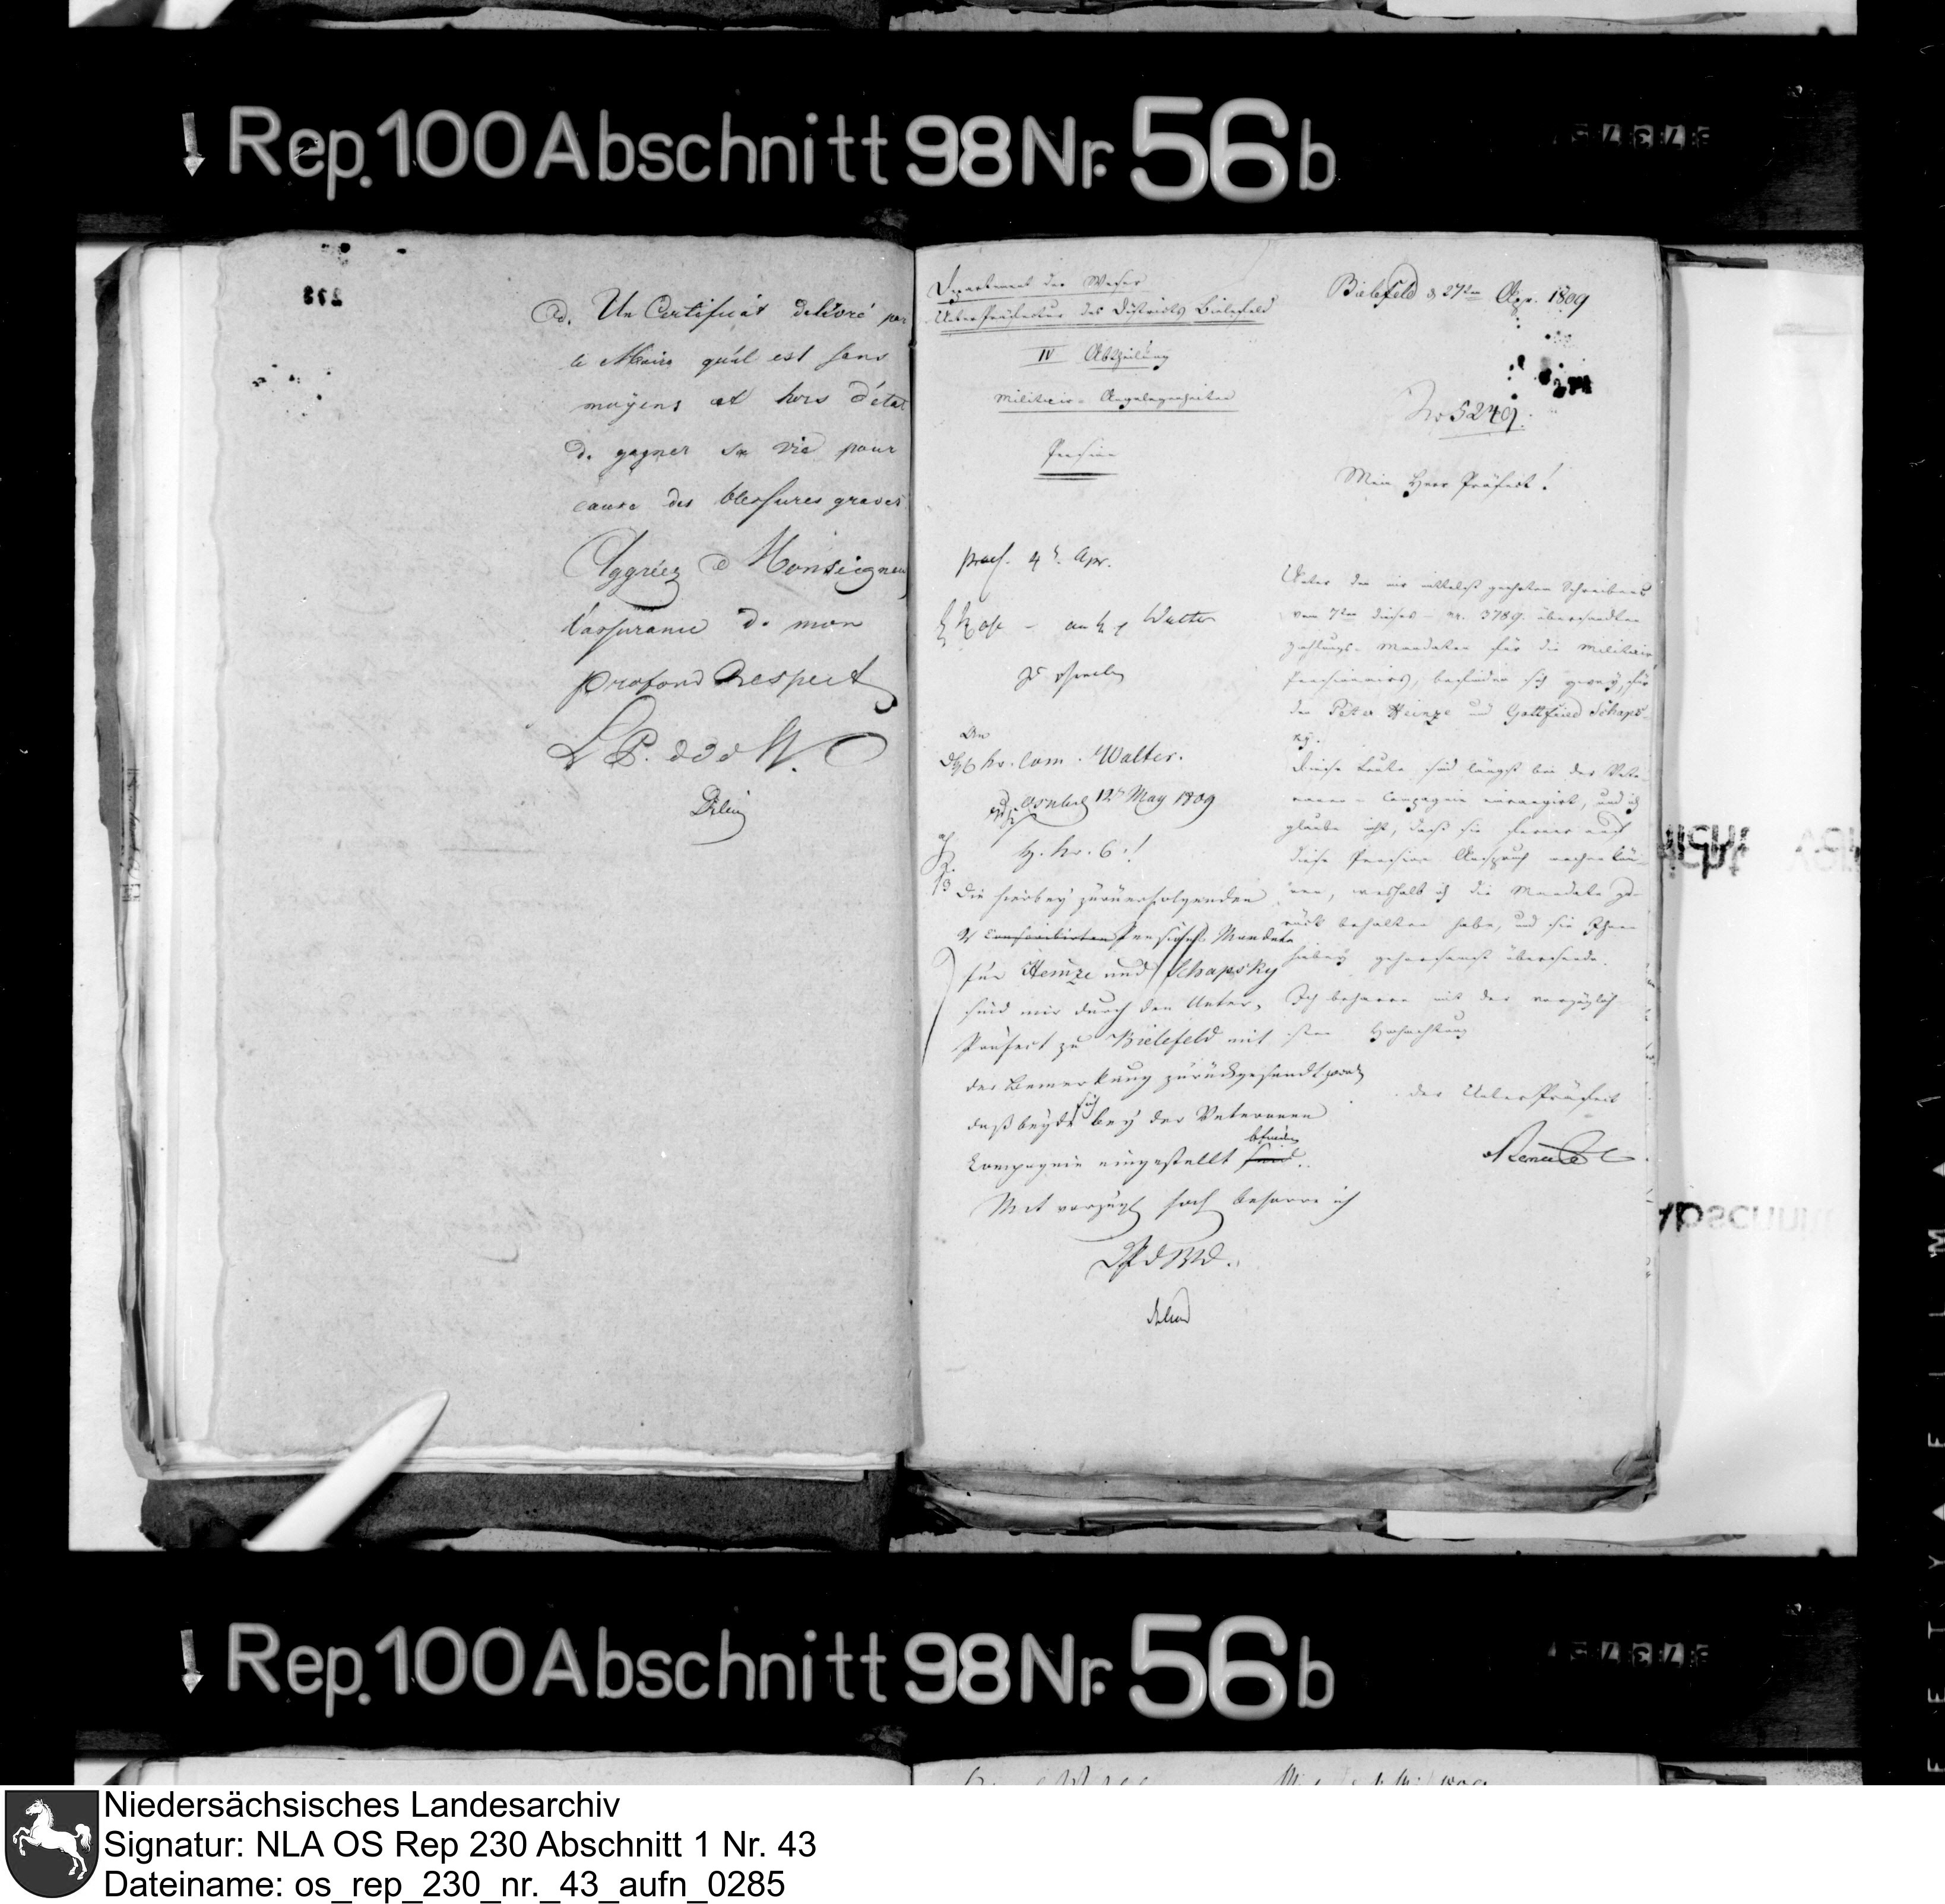 Rep. 100 Abschnitt 98 Nr. 56 b
213
Un Certificat delivré par
le Maire qu'il est sans
moyens et hors d'état
de gagner sa vie pour
cause des blessures graves
Aggréez Monseigneur
l'assurance de mon
profond Respect
Departement der Weser
UnterPräfectur des Districts Bielefeld
IV Abtheilung
Militair-Angelegenheiten
Pension
Bielefeld d 27ten Apr. 1809
No 5249.
Mein Herr Präfect!
Unter den mir mittelst geehrten Schreibens
vom 7ten dieses - nr. 3789. übersandten
Zahlungs-Mandaten für die Militair
Pensionairs, befinden sich zwey, für
den Peter Heinze und Gottfried Schaps-
ky.
Diese Leute sind längst bei der Vete-
ranen-Compagnie einrangirt, und ich
glaube nicht, daß sie ferner auf
diese Pension Anspruch machen kön-
nen, weshalb ich die Mandate zu-
rück behalten habe, und sie Ihnen
hiebey gehorsamst übersende.
Ich beharre mit der vorzüglich-
sten Hochachtung
der UnterPräfect
Apr.
Walter
An
Walter.
12t May 1809
Die hierbey zurückerfolgenden
Pensions Mandate
für Heinze und Schapsky
sind mir durch den Unter-
Präfect zu Bielefeld mit
der Bemerkung zurückgesandt
daß beyde sich bey der Veteranen
Compagnie eingestellt sind befinden.
Mit vorzügl hoch beharre ich
Rep. 100 Abschnitt 98 Nr. 56 b
Niedersächsisches Landesarchiv
Signatur: NLA OS Rep 230 Abschnitt 1 Nr. 43
Dateiname: os_rep_230_nr._43_aufn_0285